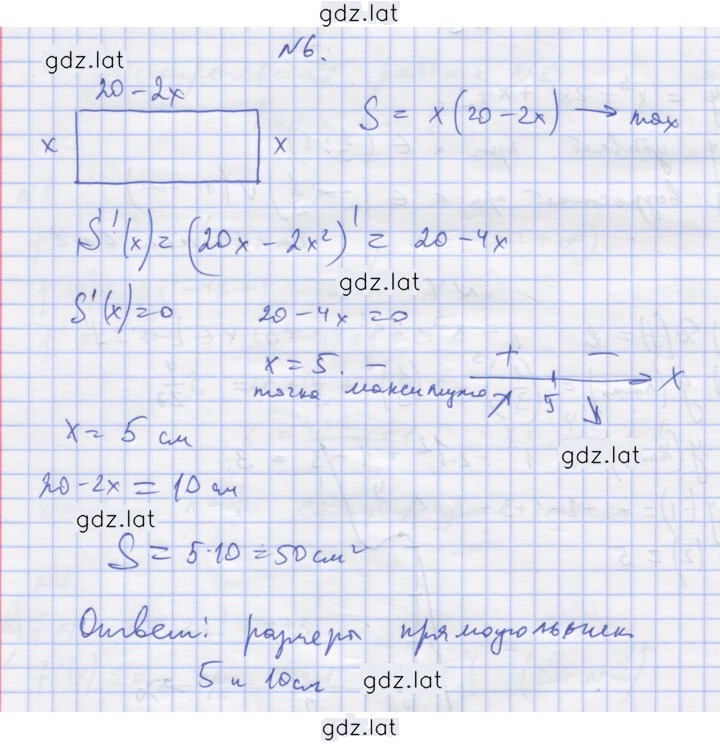 gdz.lat
N6.
gdz.lat
20-2x
x
x
S = x(20-2x) → max
S'(x) = (20x - 2x²)' = 20-4x
gdz.lat
S'(x)=0 20-4x=0
x = 5. -
точка максимума
+ -
5 x
x = 5 см
gdz.lat
20-2x = 10 см
gdz.lat
S = 5·10 = 50 см²
Ответ: размеры прямоугольник
5 и 10 см gdz.lat
gdz.lat